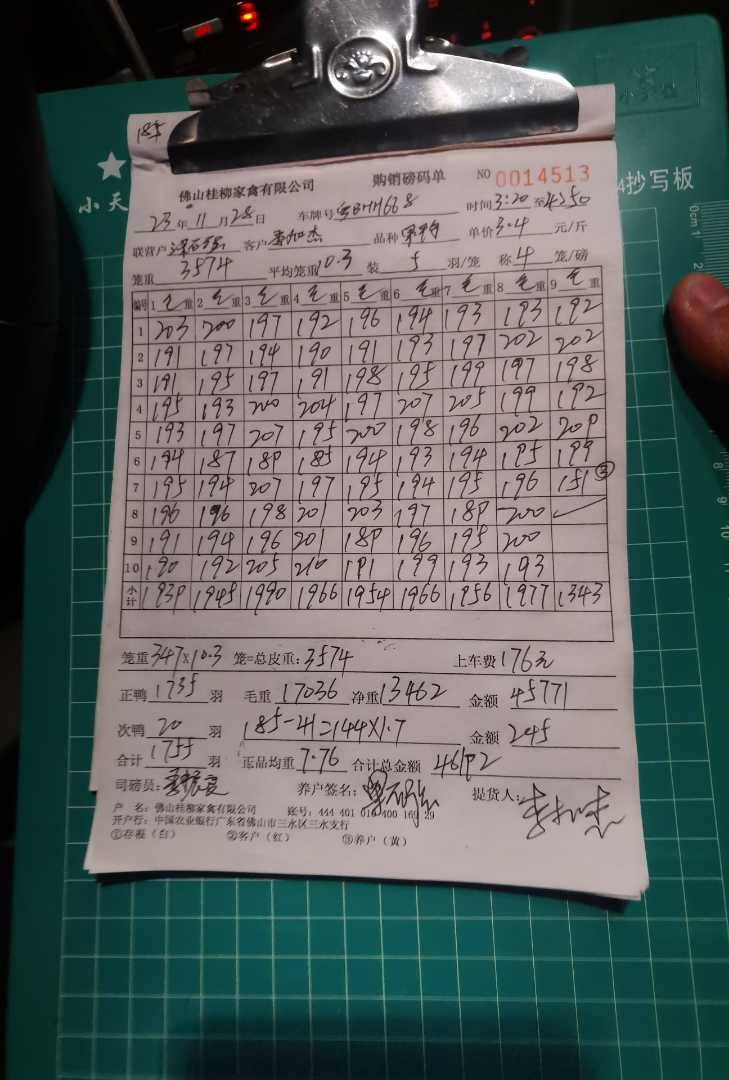 185
小天
A4抄写板
佛山桂柳家禽有限公司 购销磅码单 NO 0014513
23年11月28日 车牌号 粤BHH668 时间3:20至4:50
联营户 客户 李加杰 品种 单价3.4元/斤
笼重3574 平均笼重10.3 装5羽/笼 称4笼/磅
编号 1毛重 2毛重 3毛重 4毛重 5毛重 6毛重 7毛重 8毛重 9毛重
1 203 200 197 192 196 194 193 193 192
2 191 197 194 190 191 193 197 202 202
3 191 195 197 191 198 195 199 197 198
4 195 193 200 204 197 207 205 199 192
5 193 197 207 195 200 198 196 202 209
6 194 187 189 185 194 193 194 195 199
7 195 194 207 197 195 194 195 196 151③
8 196 196 198 201 203 197 189 200 ✓
9 191 194 196 201 189 196 195 200
10 190 192 205 210 191 199 193 193
小计 1939 1945 1990 1966 1954 1966 1956 1977 1343
笼重347×10.3 笼=总皮重:3574 上车费176元
正鸭1735羽 毛重17036 净重13462 金额45771
次鸭20羽 185-41=144×1.7 金额245
合计1755羽 正品均重7.76 合计总金额46192
司磅员: 养户签名: 提货人:李加杰
户 名:佛山桂柳家禽有限公司 账号:444 401 010 400 169 29
开户行:中国农业银行广东省佛山市三水区三水支行
①存根(白) ②客户(红) ③养户(黄)